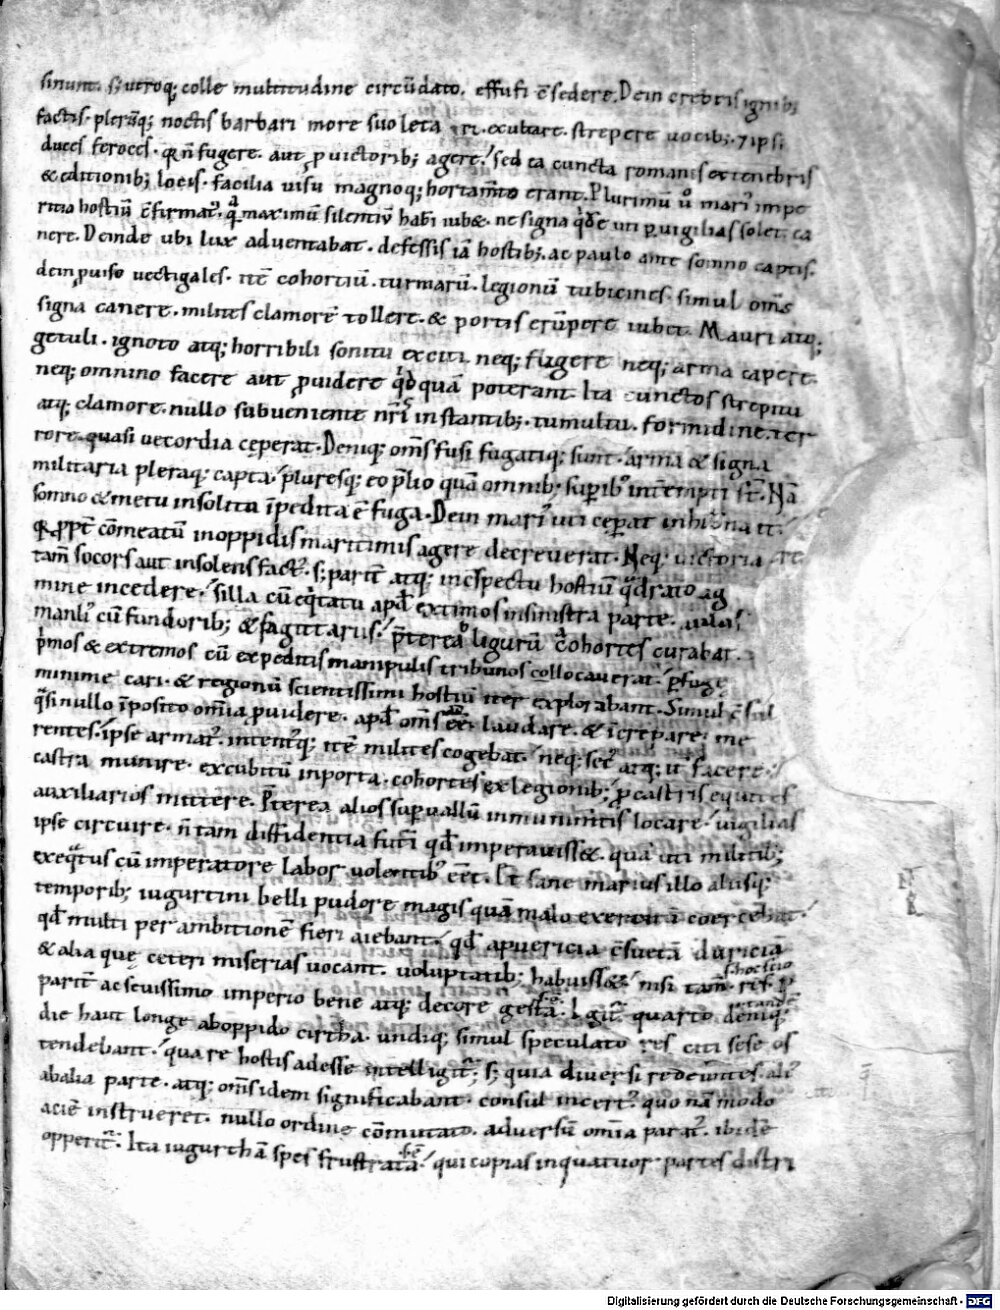 sinunt. s; utroq; colle multitudine circūdato. effusi c̄sedere. Dein crebris ignib;
factis. plerāq; noctis barbari more suo leta ri. exultare. strepere uocib; ⁊ ipsi
duces feroces. qa n̄ fugere. aut ꝓ uictorib; agere. sed ea cuncta romanis ex tenebris
& editionib; locis. facilia uisu magnoq; hortam̄to erant. Plurimū ů mari᷒ impe
ritia hostiū c̄firmat᷒. quā maximū silentiū habi iub&. ne signa qͥdē uti ꝑ uigilias solet. ca
nere. Deinde ubi lux aduentabat. defessis iā hostib;. ac paulo ante somno captis.
deīpuiso uectigales. itē cohortiū. turmarū. legionū tubicines. simul om̄s
signa canere. milites clamorē tollere. & portis erūpere iubet. Mauri atq;
getuli. ignoto atq; horribili sonitu exciti. neq; fugere neq; arma capere.
neq; omnino facere aut ꝓuidere qͥdquā poterant. Ita cunctos strepitu
atq; clamore. nullo subueniente nr̄is instantib;. tumultu. formidine. ter
rore. quasi uecordia ceperat. Deniq; om̄s fusi fugatiq; sunt. arma & signa
militaria pleraq; capta. pluresq; eo p̄lio quā omnib; supͥib᷒ intēempti st̄. Nā
somno & metu insolita īpedita ē fuga. Dein mari᷒ uti ceꝑat inhibͬna it.
qa ꝓpt̄ cōmeatū inoppidis maritimis agere decreuerat. Neq; uictoria
tam̄ socors aut insolens fact᷒. s; parit̄ atq; inc̄spectu hostiū quadrato ag
mine incedere. silla cū eqͥtatu apd̄ extimos insinistra parte. aulas
manli᷒ cū fundorib; & sagittariis. p̄terea ligurū cohortes curabat.
pͥmos & extremos cū expeditis manipulis tribunos collocauerat. ꝑfuge
minime cari. & regionū scientissimi hostiū iter explorabant. Simul c̄sul
qͣsi nullo īposito om̄ia ꝓuidere. apd̄ om̄s eē. laudare. & īcrepare. me
rentes. ipse armat᷒. intent᷒q; itē milites cogebat. neq; sec᷒ atq; it᷒ facere.
castra munire. excubitū inporta. cohortes ex legionib; ꝓ castris equites
auxiliarios mittere. P̄terea alios supuallū inmunim̄tis locare. uigilias
ipse circuire. n̄ tam diffidentia futͥi qd̄ imperauiss&. quā uti militib;
exeqͣtus cū imperatore labos uolentib᷒ eēt. Et sane marius illo aliisq;
temporib; iugurtini belli pudore magis quā malo exercitū coercebat.
qd̄ multi per ambitionē fieri aiebant. qd̄ apuericia c̄suetā duriciā
& alia quę ceteri miserias uocant. uoluptatib; habuiss&. nisi tam̄ res. p̄
parit̄ ac seuissimo imperio bene atq; decore gesta. Igit̄ quarto deniq;
die haut longe aboppido cirtha. undiq; simul speculato res citi sese os
tendebant. qua re hostis adesse intelligit̄; s; quia diuersi redeūtes. ali᷒
abalia parte. atq; om̄s idem significabant. consul incert᷒. quo nā modo
aciē instrueret. nullo ordine cōmutato. aduersū om̄ia parat᷒. ibidē
opperit̄. Ita iugurthā spes frustrata. qui copias inquatuor partes distri
Digitalisierung gefördert durch die Deutsche Forschungsgemeinschaft - DFG